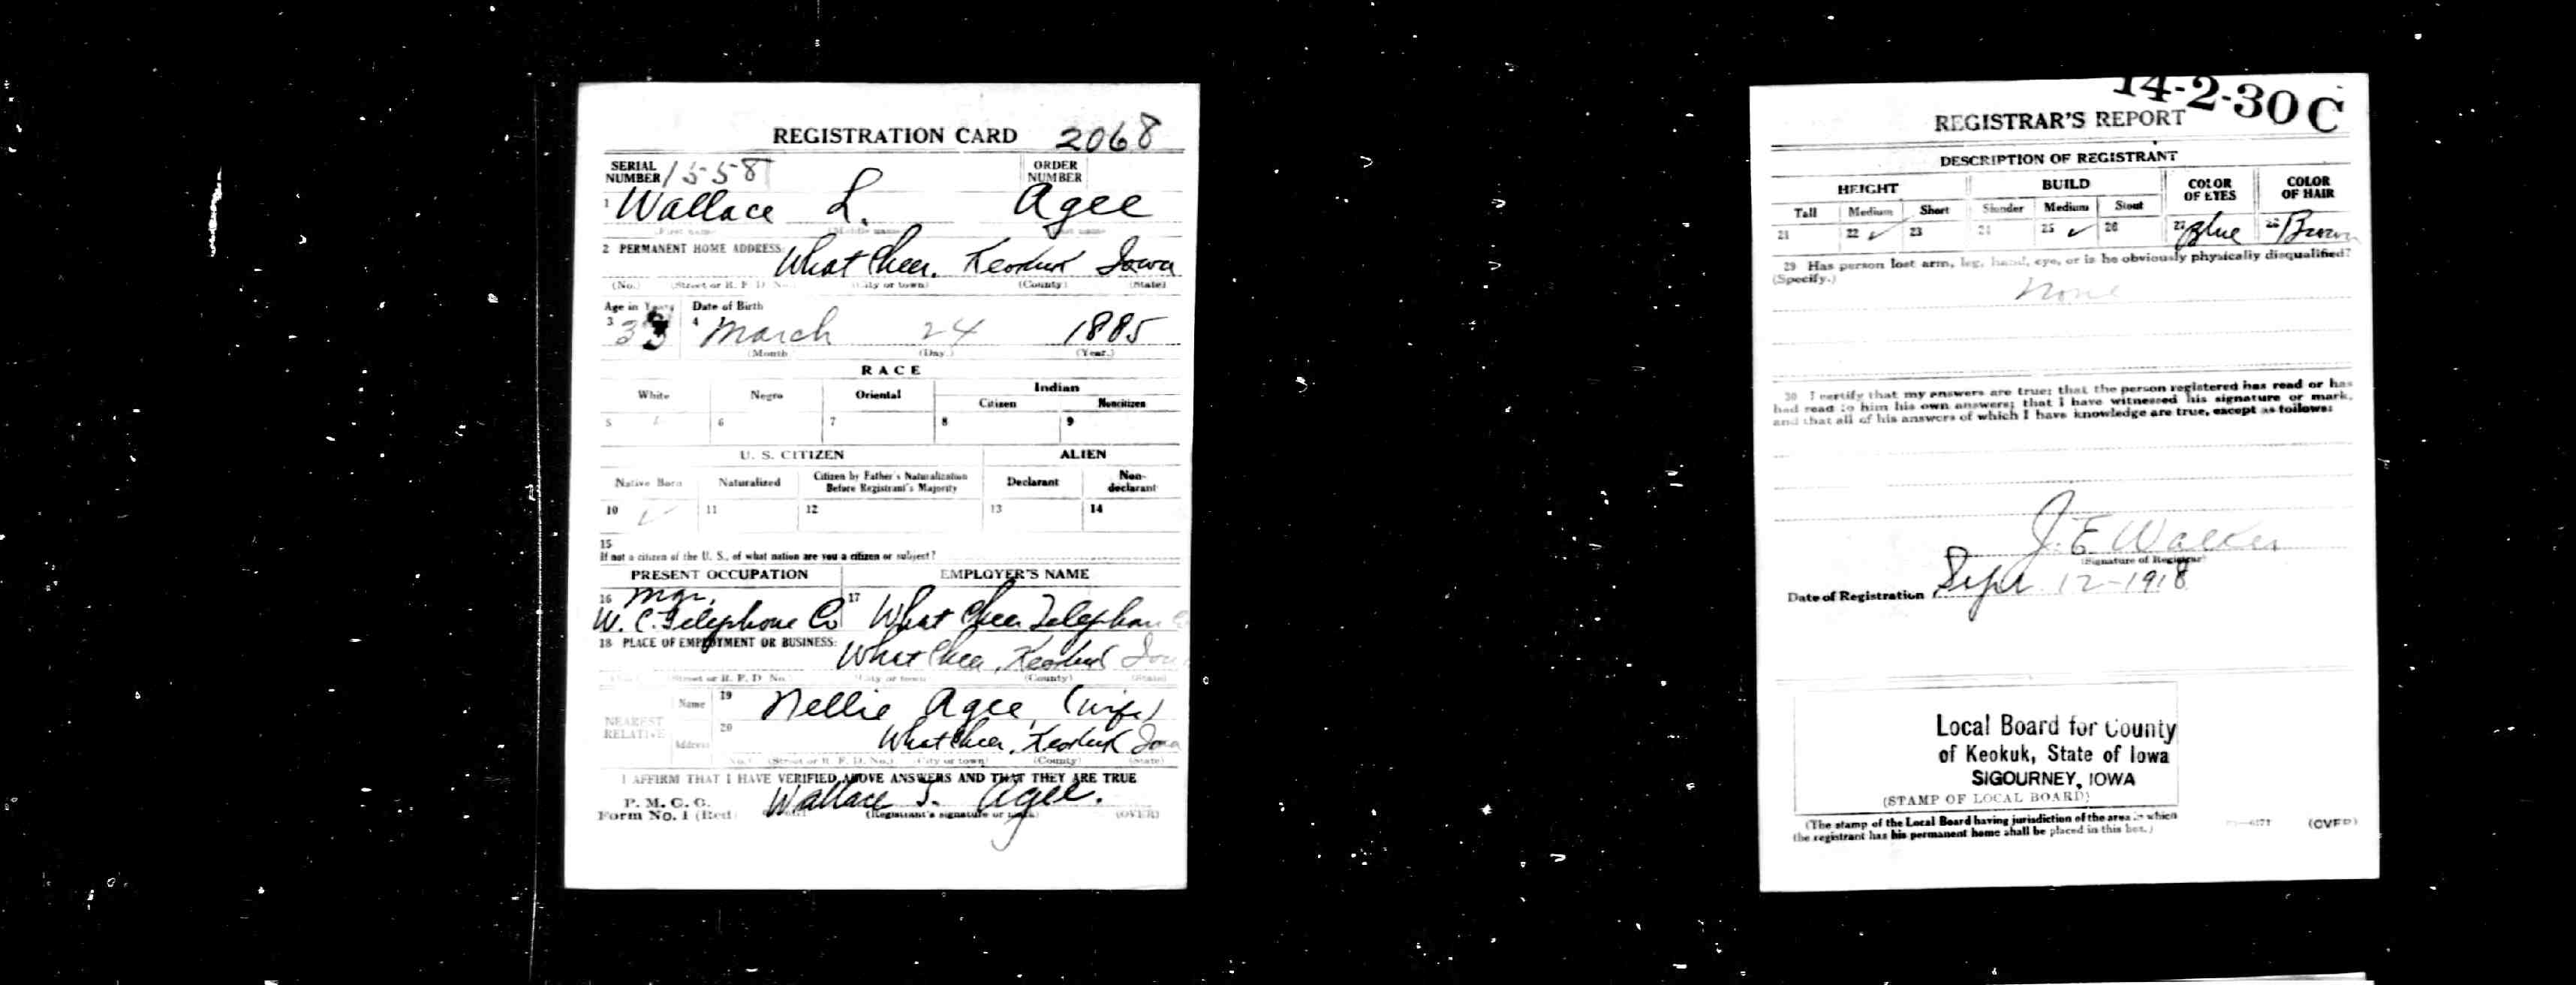 REGISTRATION CARD 2068
SERIAL NUMBER 1558 ORDER NUMBER
1 Wallace L. Agee
(First name) (Middle name) (Last name)
2 PERMANENT HOME ADDRESS: What Cheer, Keokuk Iowa
(No.) (Street or R. F. D. No.) (City or town) (County) (State)
Age in Years Date of Birth
3 33 4 March 24 1885
(Month) (Day.) (Year.)
RACE
White Negro Oriental Indian
Citizen Noncitizen
5 6 7 8 9
U. S. CITIZEN ALIEN
Native Born Naturalized Citizen by Father's Naturalization Before Registrant's Majority Declarant Non-declarant
10 ✓ 11 12 13 14
15
If not a citizen of the U. S., of what nation are you a citizen or subject?
PRESENT OCCUPATION EMPLOYER'S NAME
16 Mgr, 17
W. C. Telephone Co What Cheer Telephon
18 PLACE OF EMPLOYMENT OR BUSINESS:
What Cheer, Keokuk Iow
(Street or R. F. D. No.) (City or town) (County) (State)
NEAREST RELATIVE Name 19 Nellie Agee, (wife)
Address 20 What Cheer, Keokuk Iowa
(No.) (Street or R. F. D. No.) (City or town) (County) (State)
I AFFIRM THAT I HAVE VERIFIED ABOVE ANSWERS AND THAT THEY ARE TRUE
P. M. G. O.
Form No. 1 (Red) Wallace L. Agee.
(Registrant's signature or mark) (OVER)
14-2-30 C
REGISTRAR'S REPORT
DESCRIPTION OF REGISTRANT
HEIGHT BUILD COLOR OF EYES COLOR OF HAIR
Tall Medium Short Slender Medium Stout
21 22 ✓ 23 24 25 ✓ 26 27 Blue 28 Brown
29 Has person lost arm, leg, hand, eye, or is he obviously physically disqualified?
(Specify.)
None
30 I certify that my answers are true; that the person registered has read or has
had read to him his own answers; that I have witnessed his signature or mark,
and that all of his answers of which I have knowledge are true, except as follows:
J. E. Walker
(Signature of Registrar)
Date of Registration Sept 12-1918
Local Board for County
of Keokuk, State of Iowa
SIGOURNEY, IOWA
(STAMP OF LOCAL BOARD)
(The stamp of the Local Board having jurisdiction of the area in which
the registrant has his permanent home shall be placed in this box.)
(OVER)